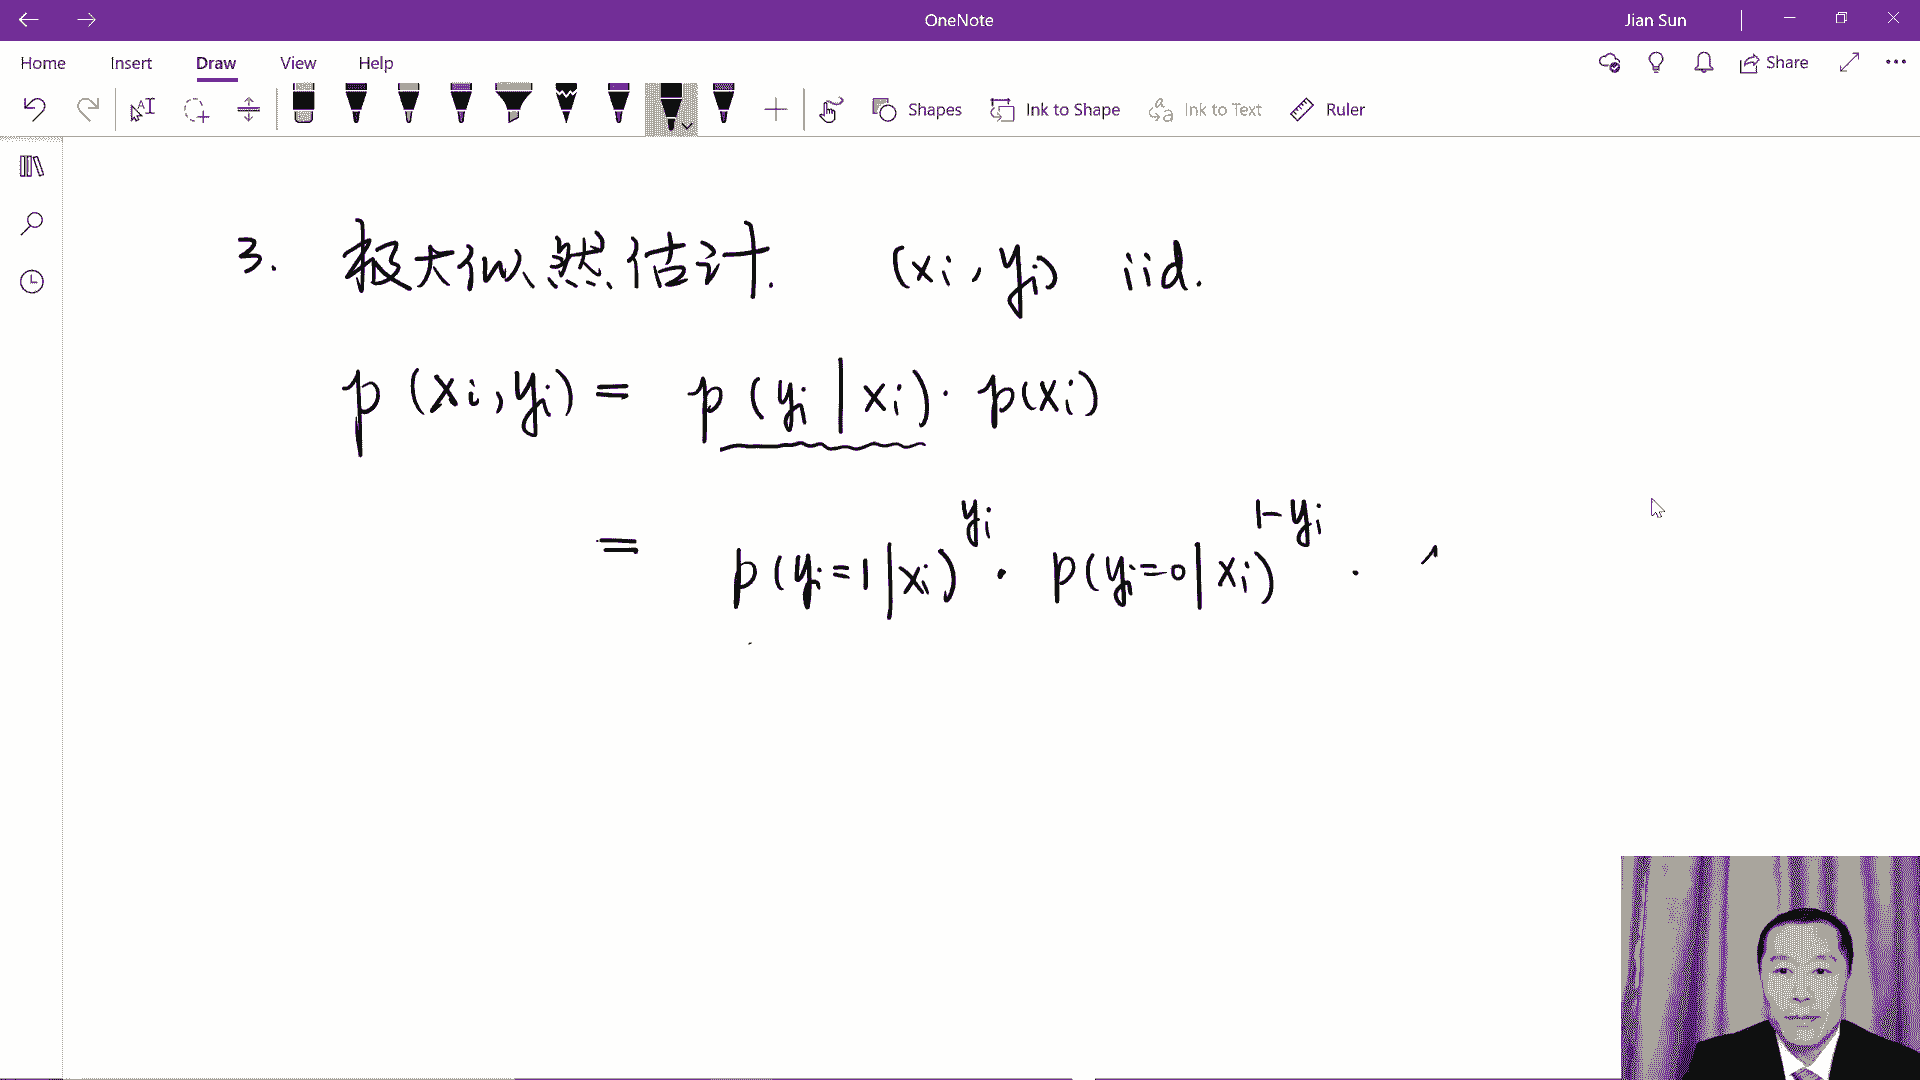 OneNote
Jian Sun
Home Insert Draw View Help
Share
Shapes Ink to Shape Ink to Text Ruler
3. 极大似然估计. (xi, yi) iid.
p (xi, yi) = p (yi | xi) · p(xi)
= p (yi=1 | xi)^yi · p(yi=0 | xi)^1-yi ·